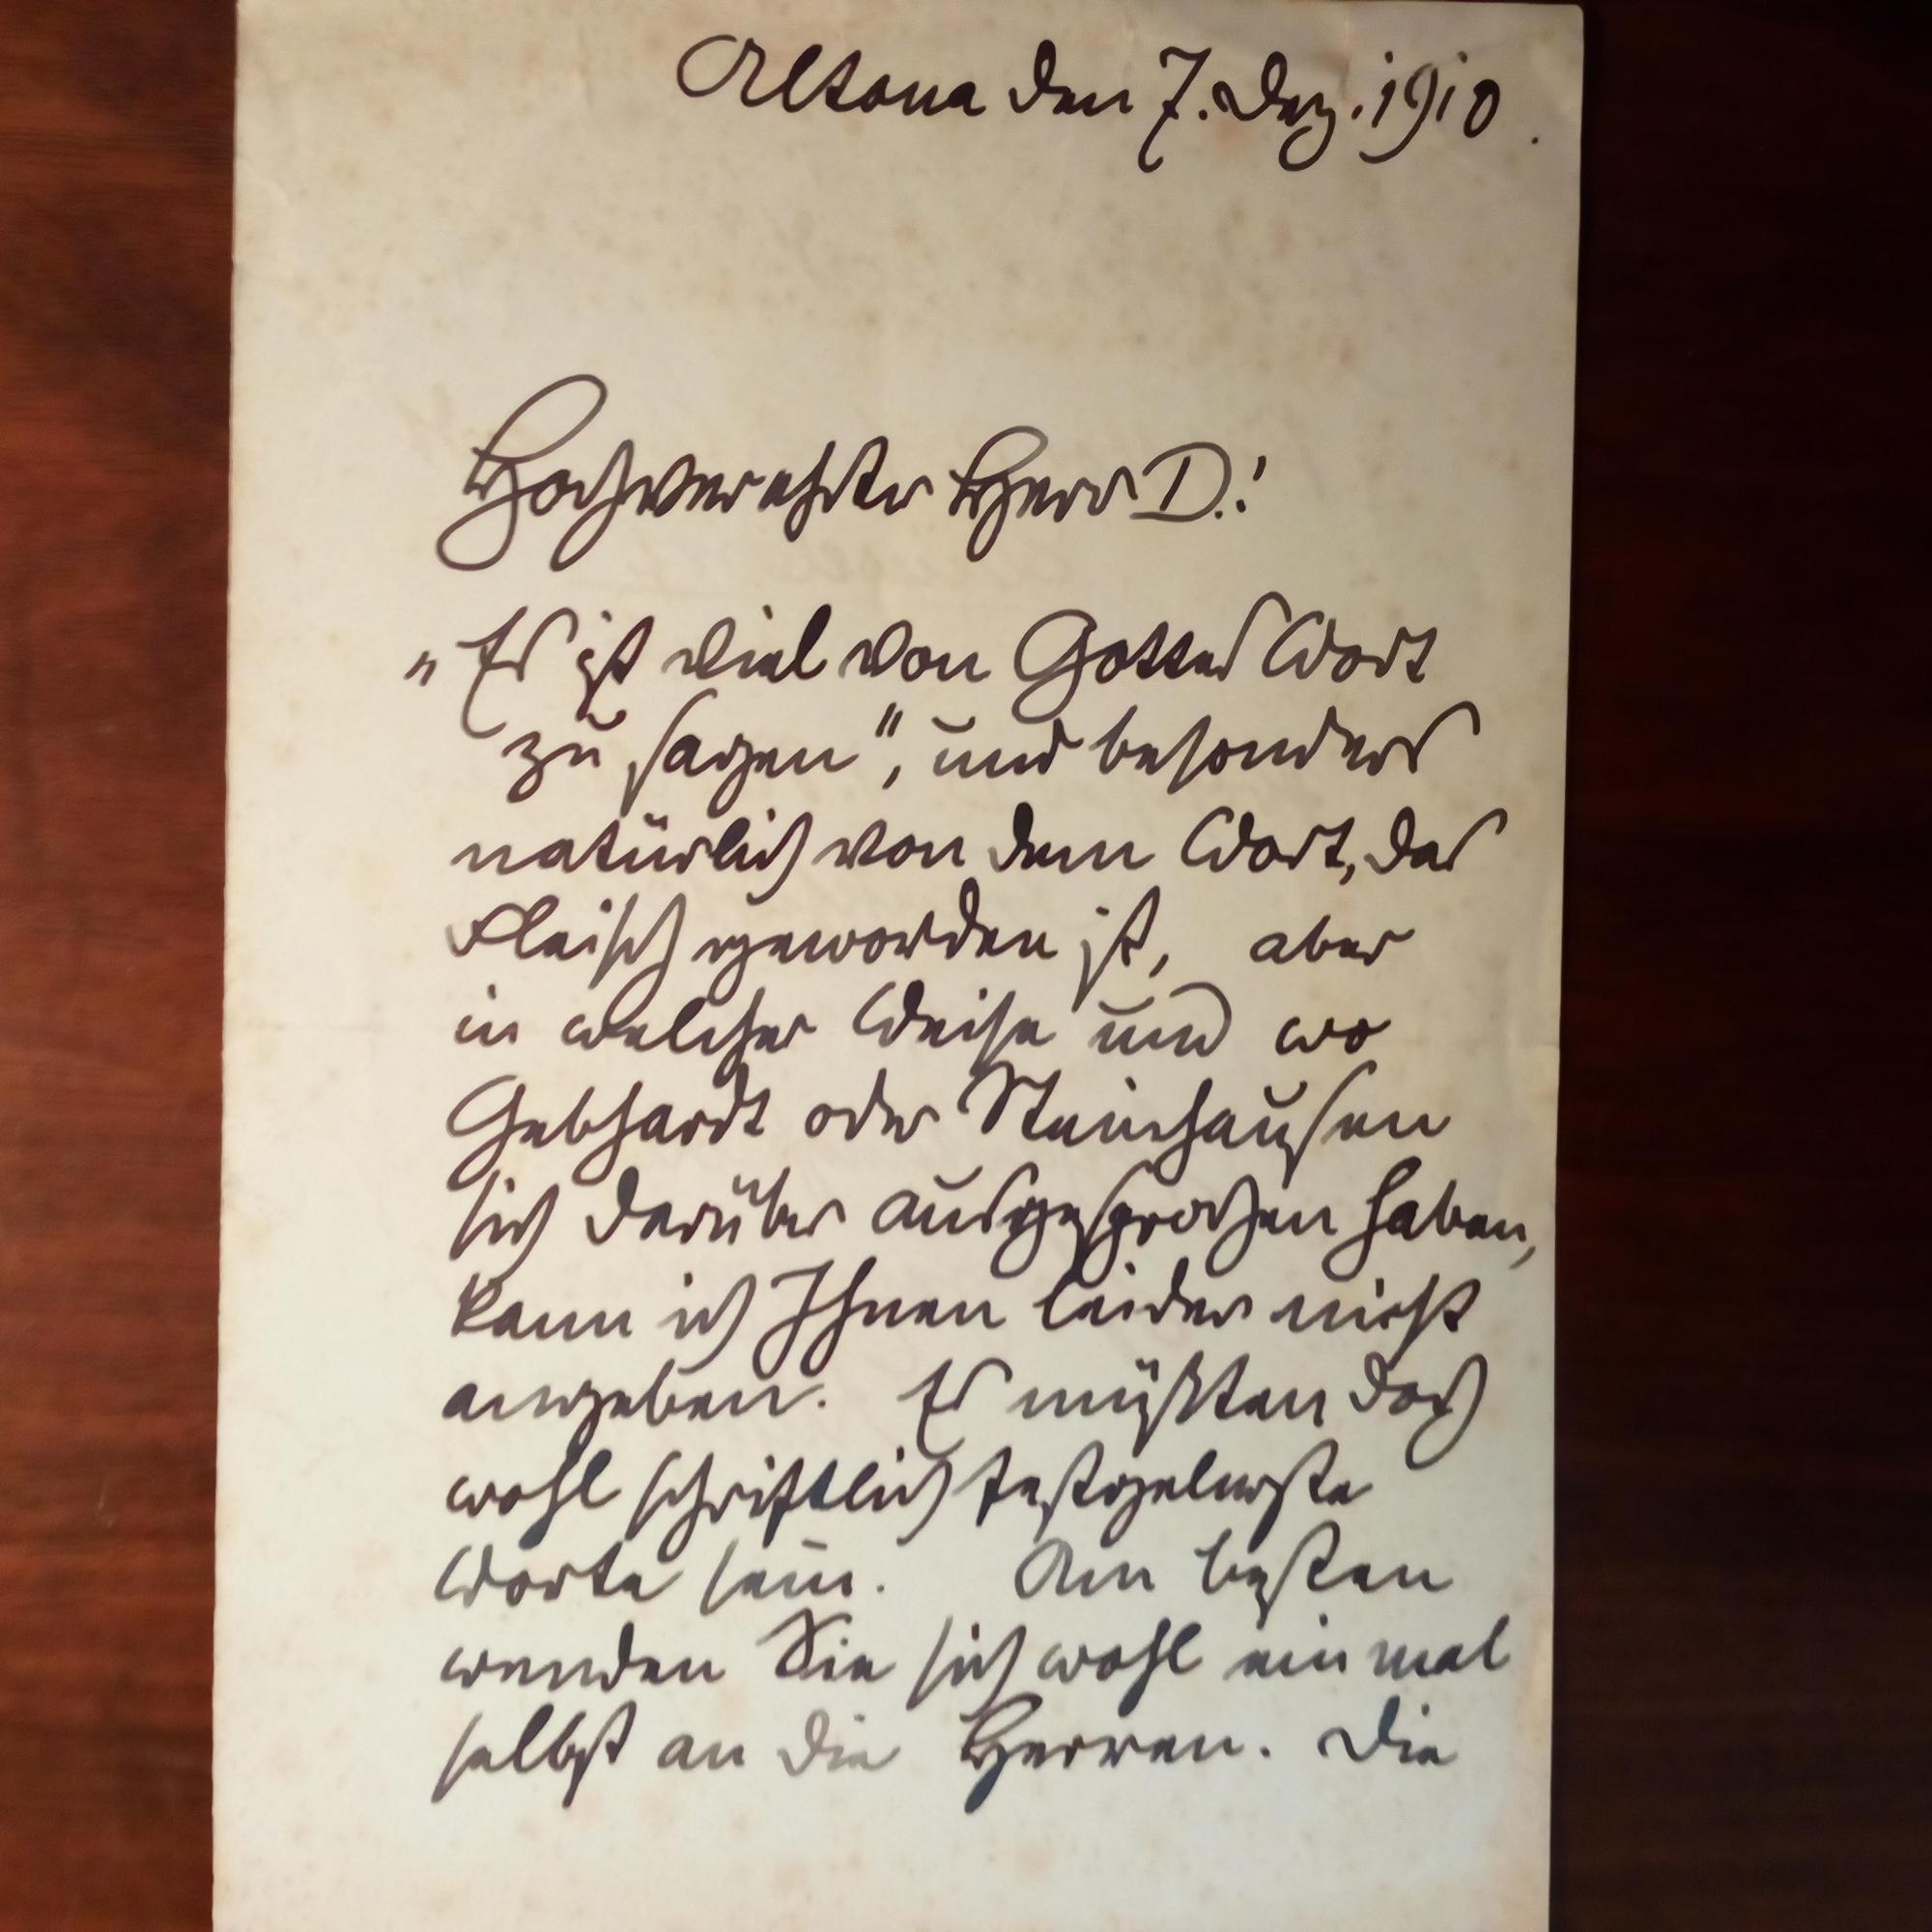 Altona den 7. Dez. 1910.
Hochverehrter Herr D.!
„Es ist viel von Gottes Wort
zu sagen", und besonders
natürlich von dem Wort, das
Fleisch geworden ist, aber
in welcher Weise und wo
Gebhardt oder Steinhausen
sich darüber ausgesprochen haben,
kann ich Ihnen leider nicht
angeben. Es müßten doch
wohl schriftlich festgelegte
Worte sein. Am besten
wenden Sie sich wohl einmal
selbst an die Herren. Die